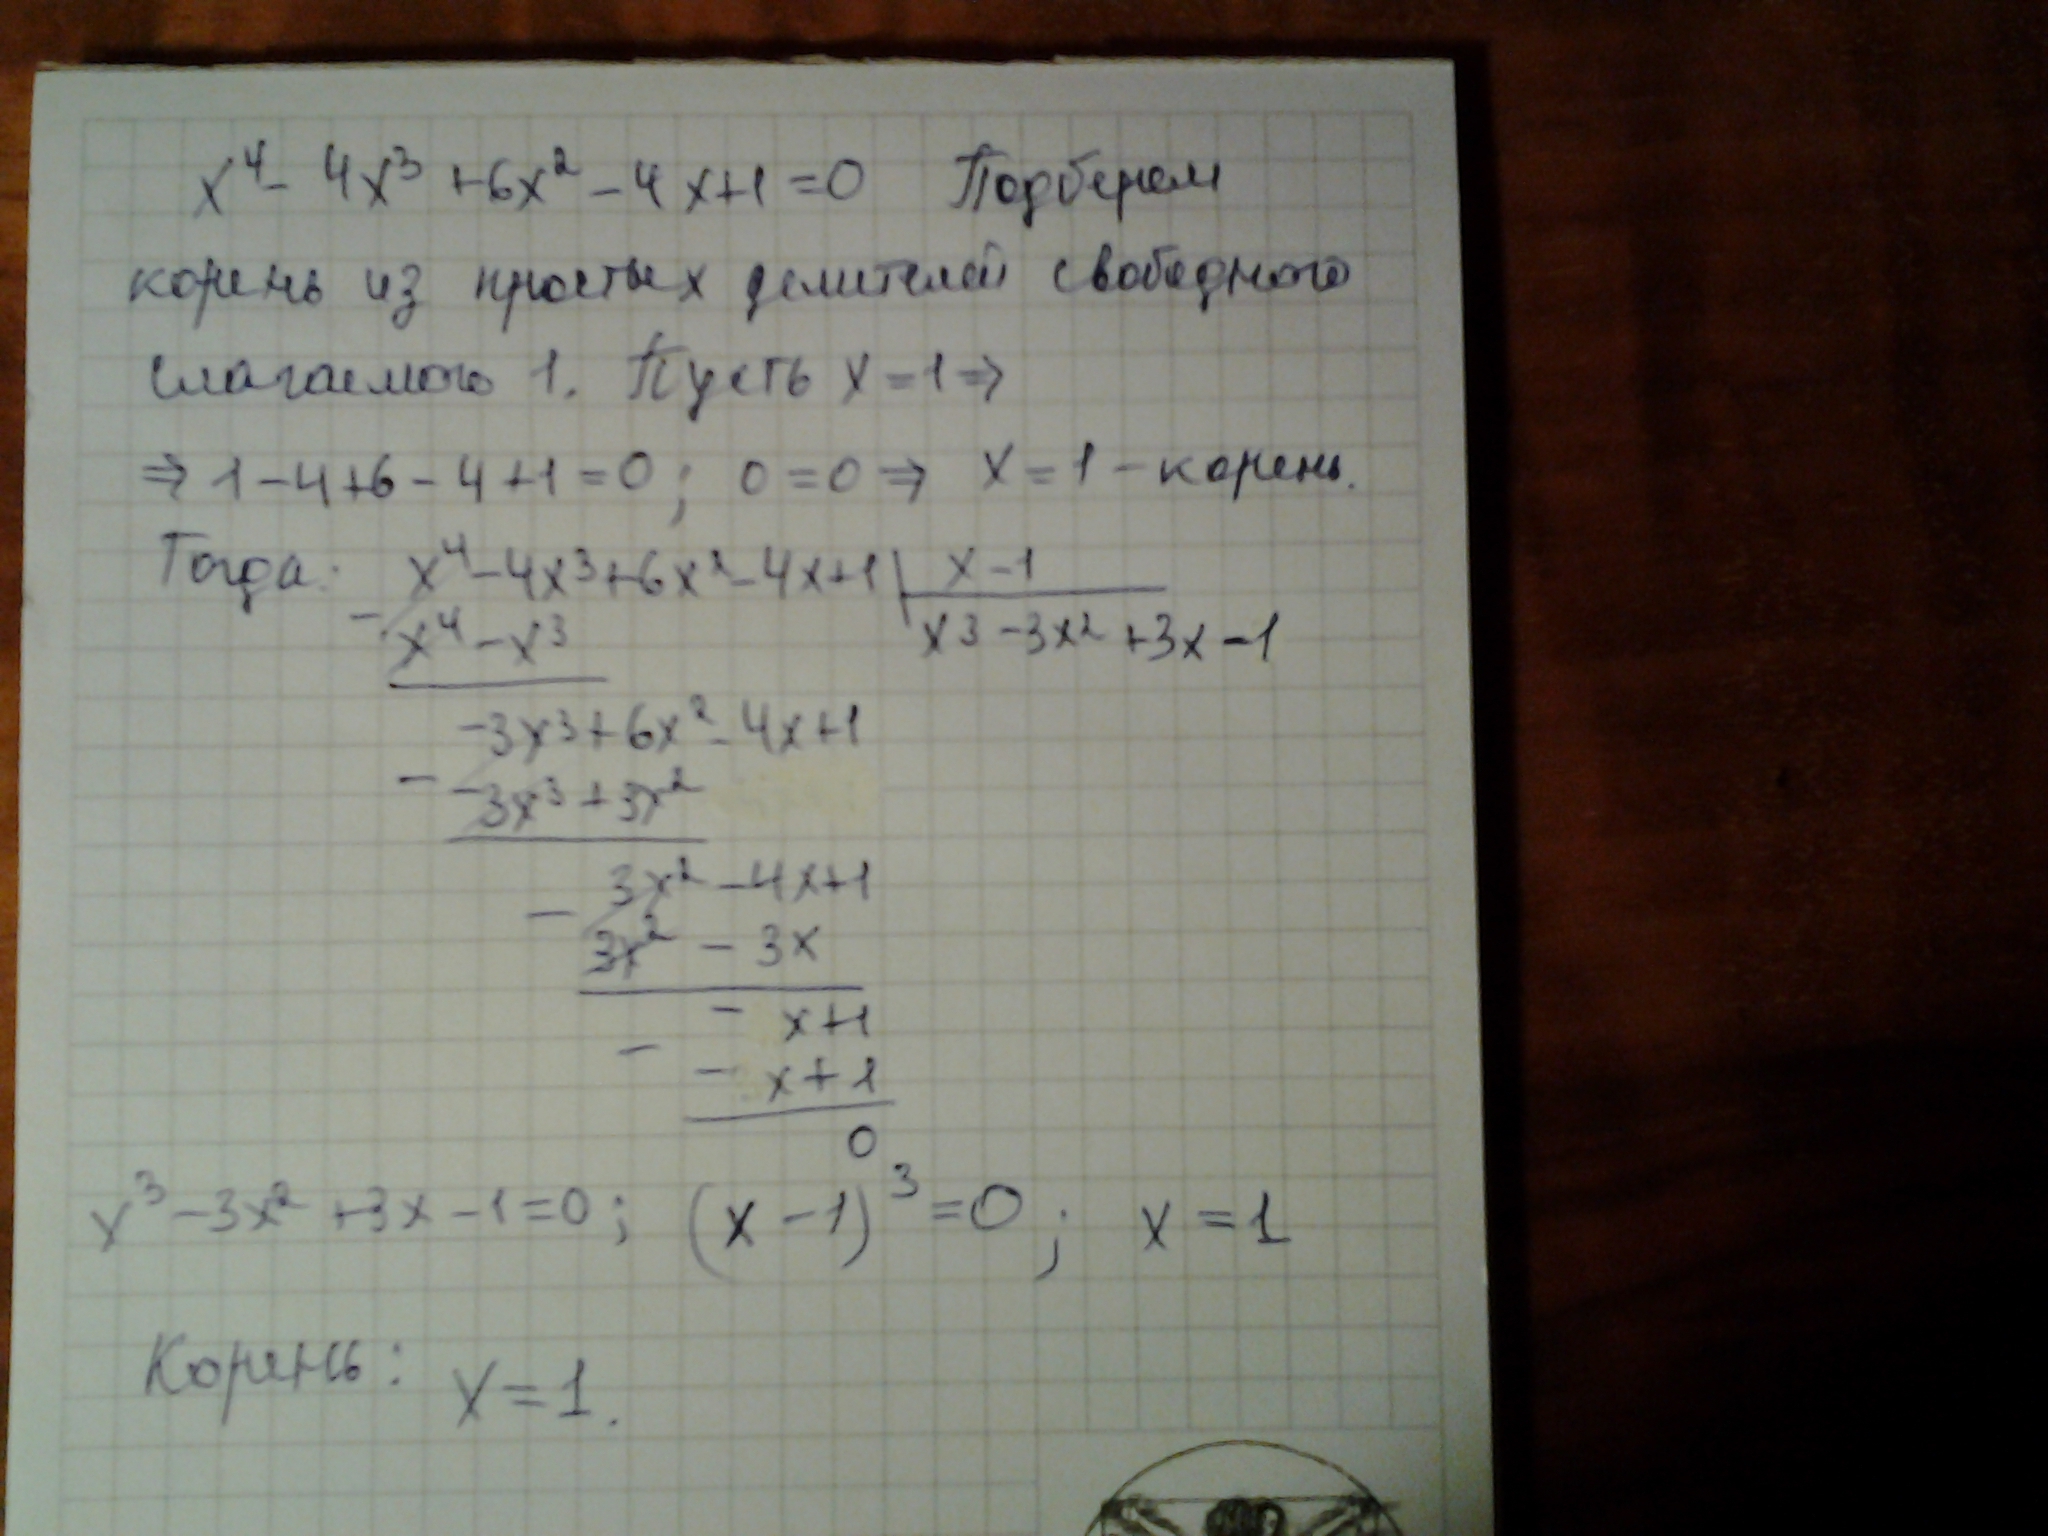 x⁴ - 4x³ + 6x² - 4x + 1 = 0 Подберем
корень из простых делителей свободного
слагаемого 1. Пусть x = 1 ⇒
⇒ 1 - 4 + 6 - 4 + 1 = 0; 0 = 0 ⇒ x = 1 - корень.
Тогда: x⁴ - 4x³ + 6x² - 4x + 1 | x - 1
- x⁴ - x³ x³ - 3x² + 3x - 1
-3x³ + 6x² - 4x + 1
- -3x³ + 3x²
3x² - 4x + 1
- 3x² - 3x
- x + 1
- - x + 1
0
x³ - 3x² + 3x - 1 = 0; (x - 1)³ = 0; x = 1
Корень: x = 1.